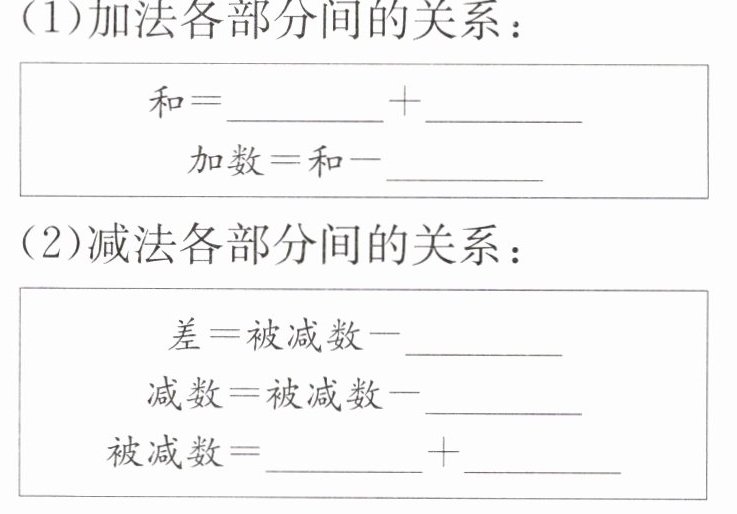 (1)加法各部分间的关系:
和=________+________
加数=和-________
(2)减法各部分间的关系:
差=被减数-________
减数=被减数-________
被减数=________+________